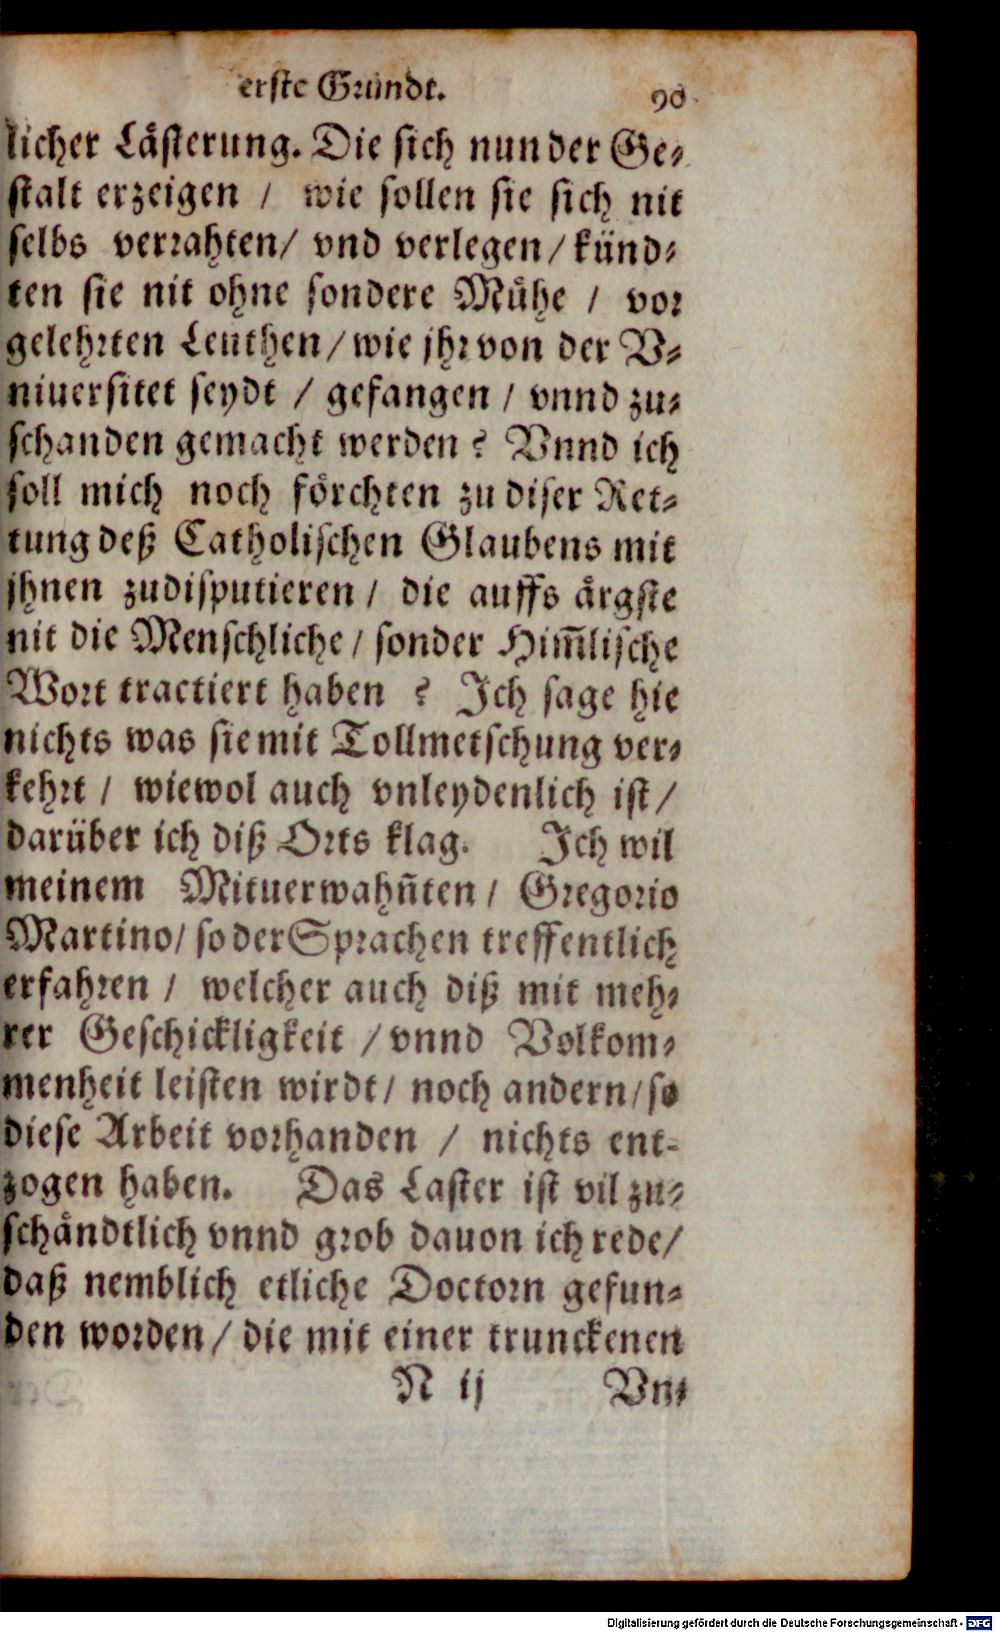 erste Grundt.
90
licher Lästerung. Die sich nun der Ge⸗
stalt erzeigen / wie sollen sie sich nit
selbs verrahten/ vnd verlegen/ künd⸗
ten sie nit ohne sondere Mühe / vor
gelehrten Leuthen/ wie jhr von der V⸗
niuersitet seydt / gefangen / vnnd zu⸗
schanden gemacht werden? Vnnd ich
soll mich noch förchten zu diser Ret⸗
tung deß Catholischen Glaubens mit
jhnen zudisputieren / die auffs ärgste
nit die Menschliche / sonder Him̃lische
Wort tractiert haben ? Ich sage hie
nichts was sie mit Tollmetschung ver⸗
kehrt / wiewol auch vnleydenlich ist /
darüber ich diß Orts klag. Ich wil
meinem Mituerwahñten / Gregorio
Martino/ so der Sprachen treffentlich
erfahren / welcher auch diß mit meh⸗
rer Geschickligkeit / vnnd Volkom⸗
menheit leisten wirdt / noch andern / so
diese Arbeit vorhanden / nichts ent⸗
zogen haben. Das Laster ist vil zu⸗
schändtlich vnnd grob dauon ich rede/
daß nemblich etliche Doctorn gefun⸗
den worden / die mit einer trunckenen
N ij
Vn⸗
Digitalisierung gefördert durch die Deutsche Forschungsgemeinschaft - DFG